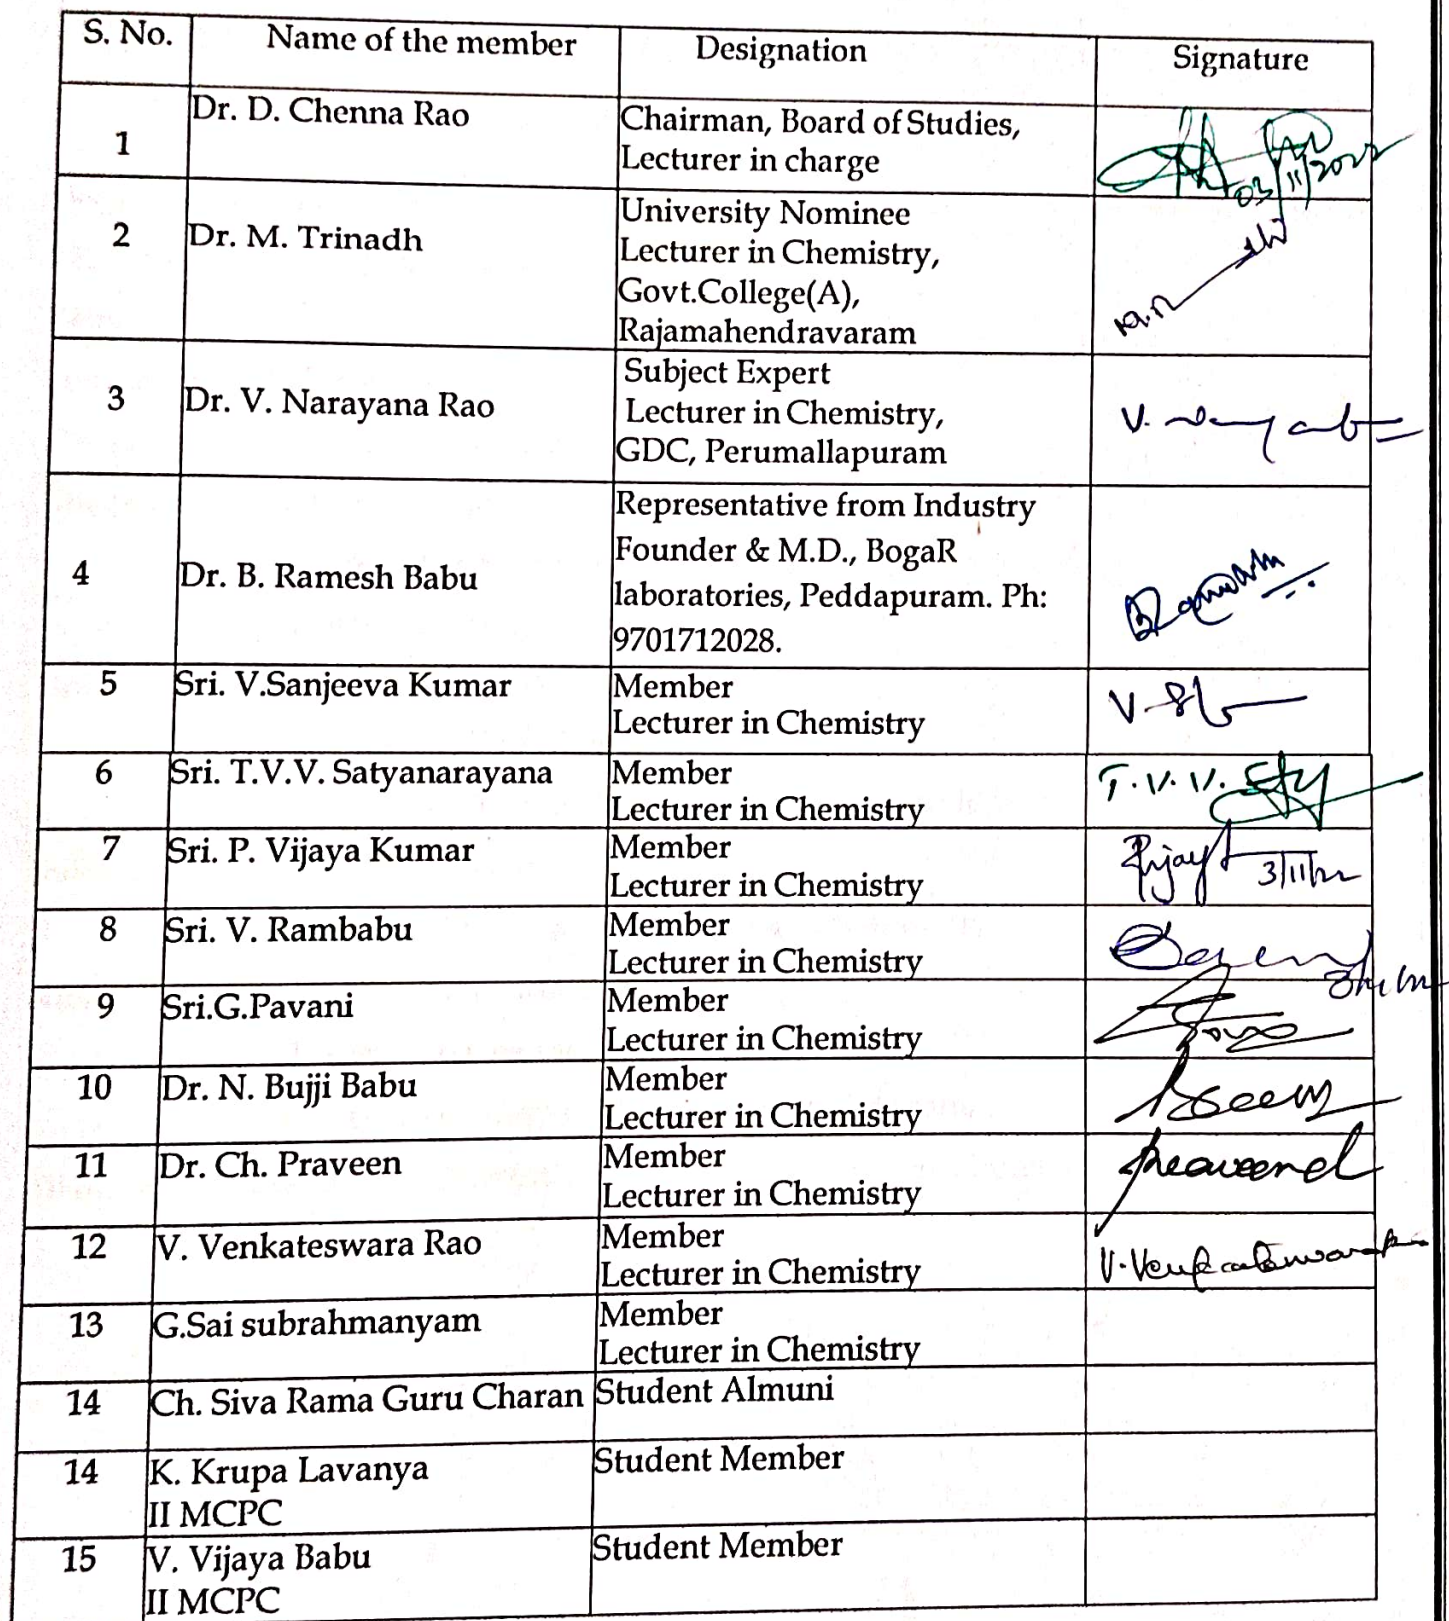 S. No. Name of the member Designation Signature
1 Dr. D. Chenna Rao Chairman, Board of Studies,
Lecturer in charge
03/11/2022
2 Dr. M. Trinadh University Nominee
Lecturer in Chemistry,
Govt.College(A),
Rajamahendravaram
3 Dr. V. Narayana Rao Subject Expert
Lecturer in Chemistry,
GDC, Perumallapuram
V.
4 Dr. B. Ramesh Babu Representative from Industry
Founder & M.D., BogaR
laboratories, Peddapuram. Ph:
9701712028.
5 Sri. V.Sanjeeva Kumar Member
Lecturer in Chemistry
6 Sri. T.V.V. Satyanarayana Member T.V.V.
Lecturer in Chemistry
7 Sri. P. Vijaya Kumar Member
Lecturer in Chemistry 3/11/22
8 Sri. V. Rambabu Member
Lecturer in Chemistry
9 Sri.G.Pavani Member
Lecturer in Chemistry
10 Dr. N. Bujji Babu Member
Lecturer in Chemistry
11 Dr. Ch. Praveen Member
Lecturer in Chemistry
12 V. Venkateswara Rao Member
Lecturer in Chemistry
13 G.Sai subrahmanyam Member
Lecturer in Chemistry
14 Ch. Siva Rama Guru Charan Student Almuni
14 K. Krupa Lavanya Student Member
II MCPC
15 V. Vijaya Babu Student Member
II MCPC